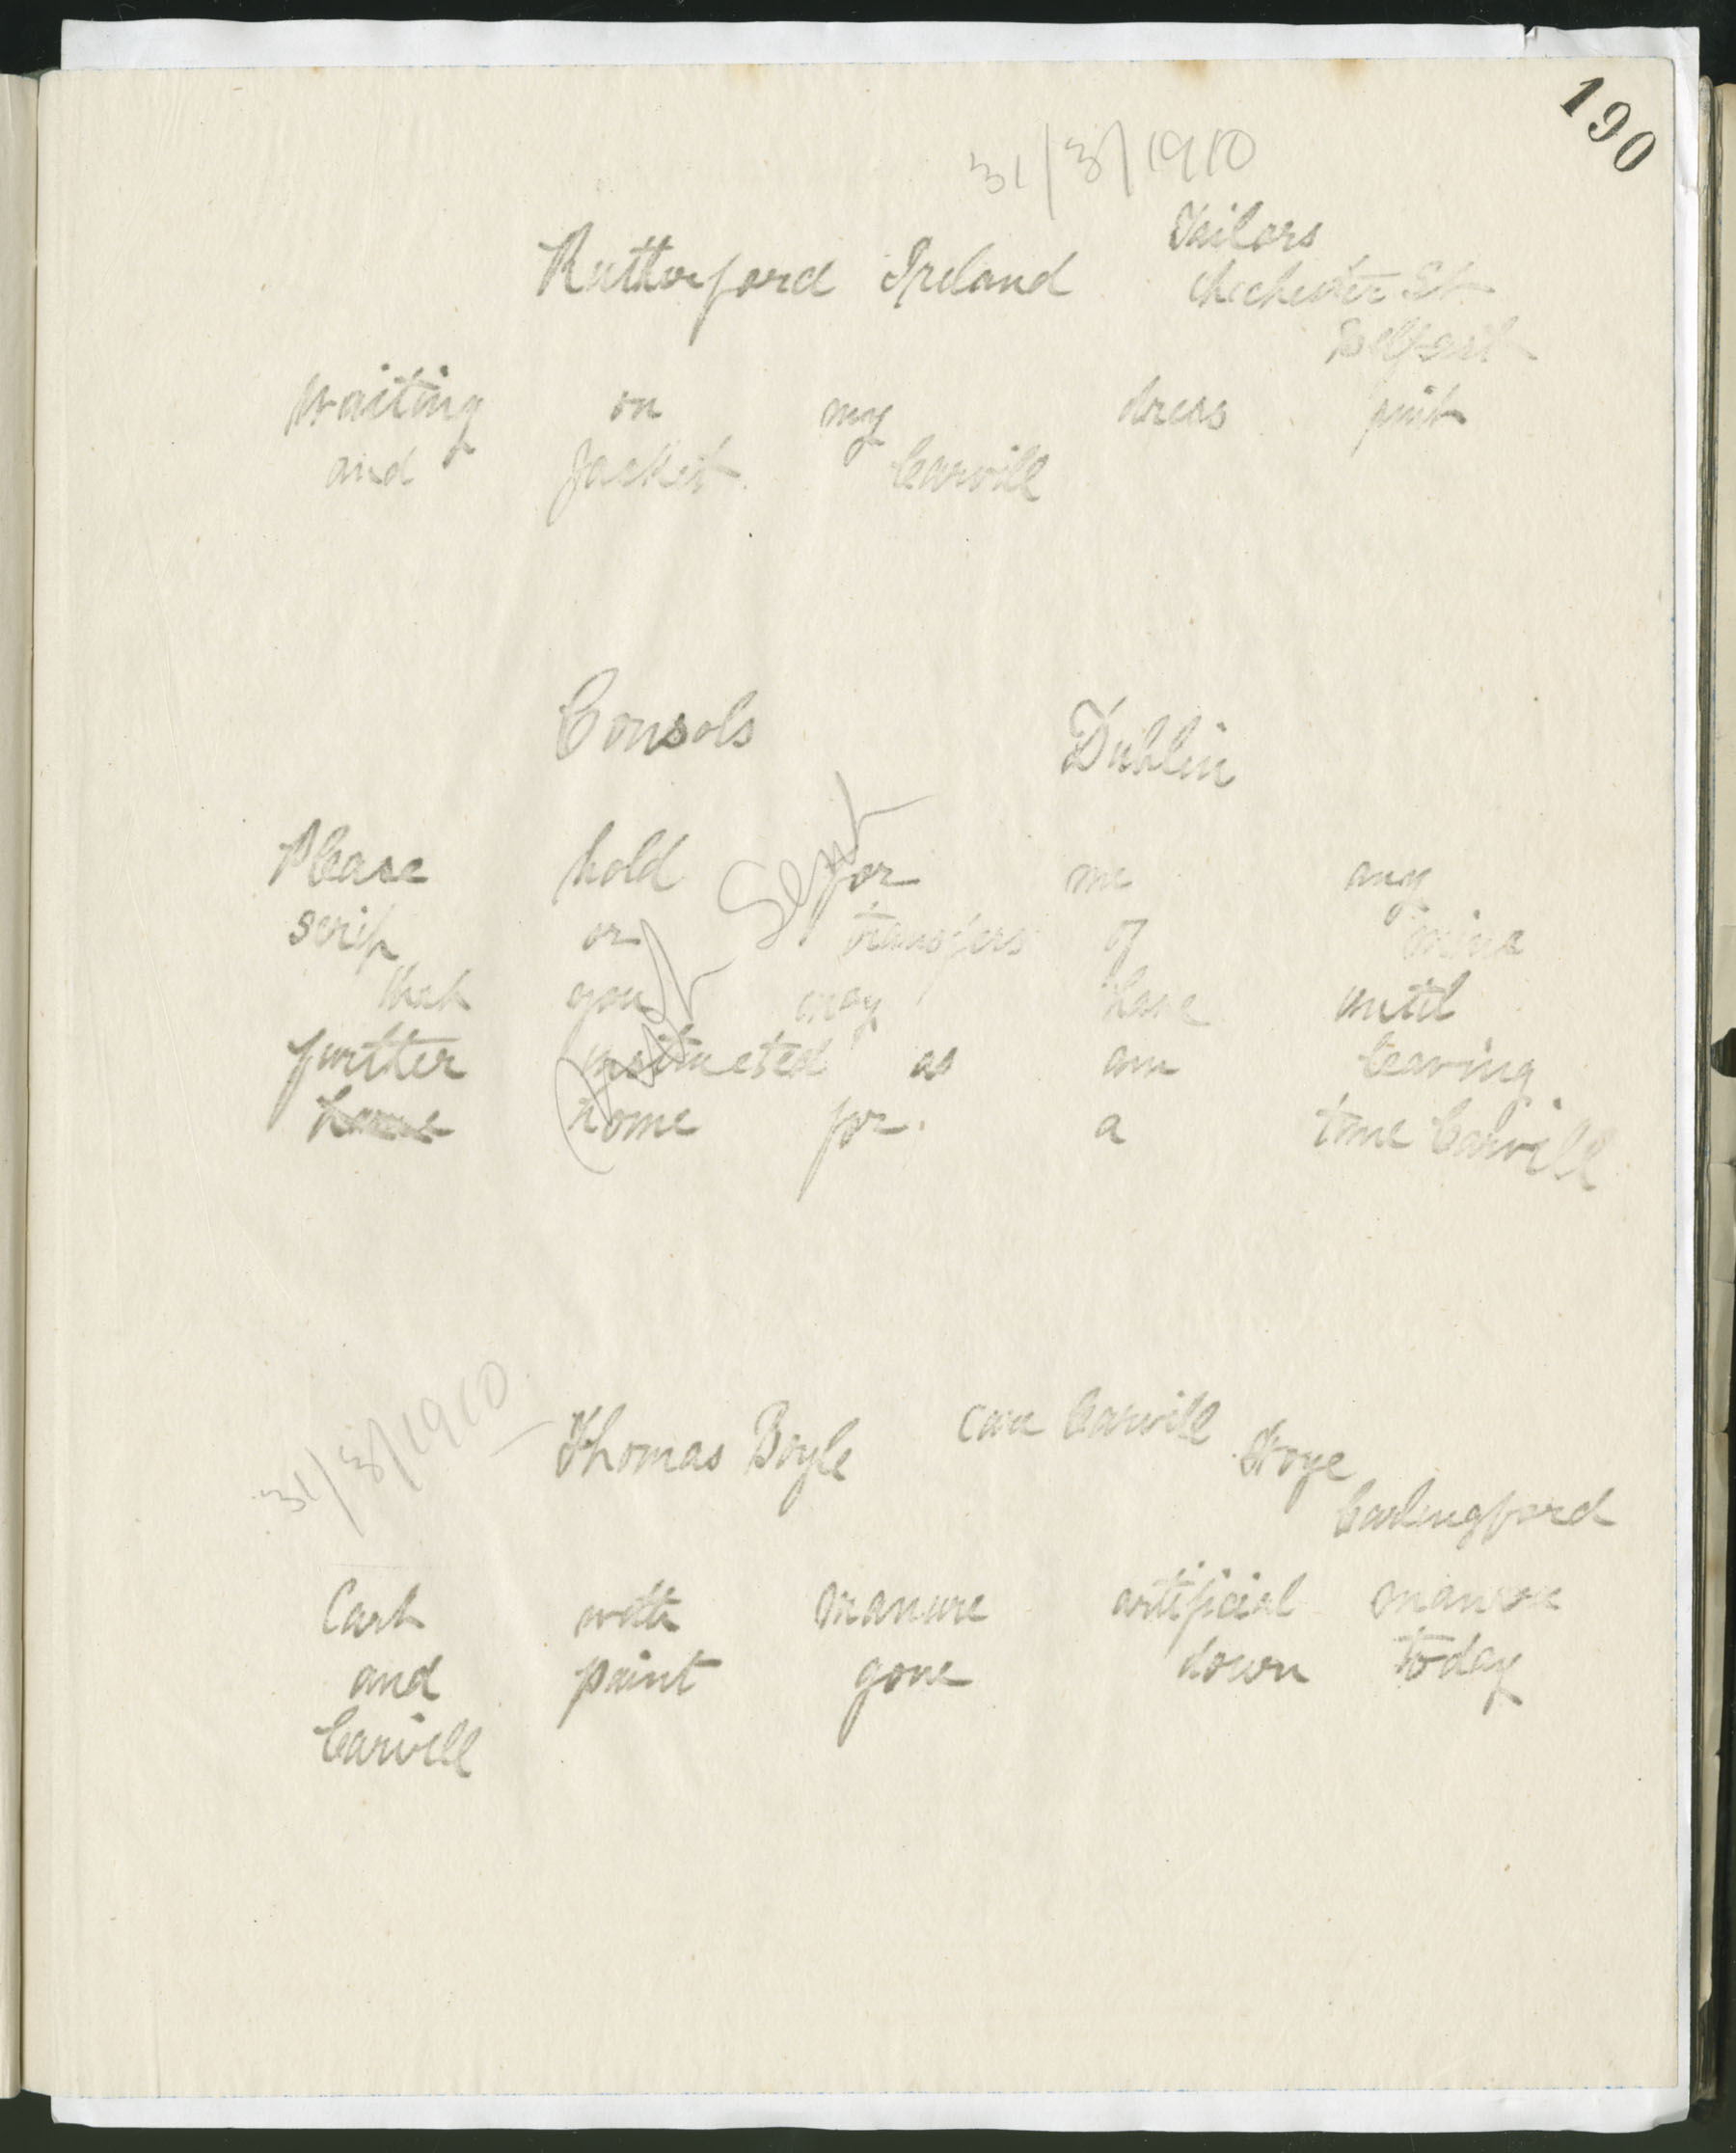 190
31/3/1910
Tailors
Rutherford Ireland Chichester St
Belfast
Waiting on my dress suit
and Jacket Carvill
Consols Dublin
Please hold for me any
scrip or transfers of mine
that you may have until
further instructed as am leaving
home for a time Carvill
Sent
31/3/1910
Thomas Boyle Care Carvill
Carlingford
Cart with manure artificial manure
and paint gone down today
Carvill